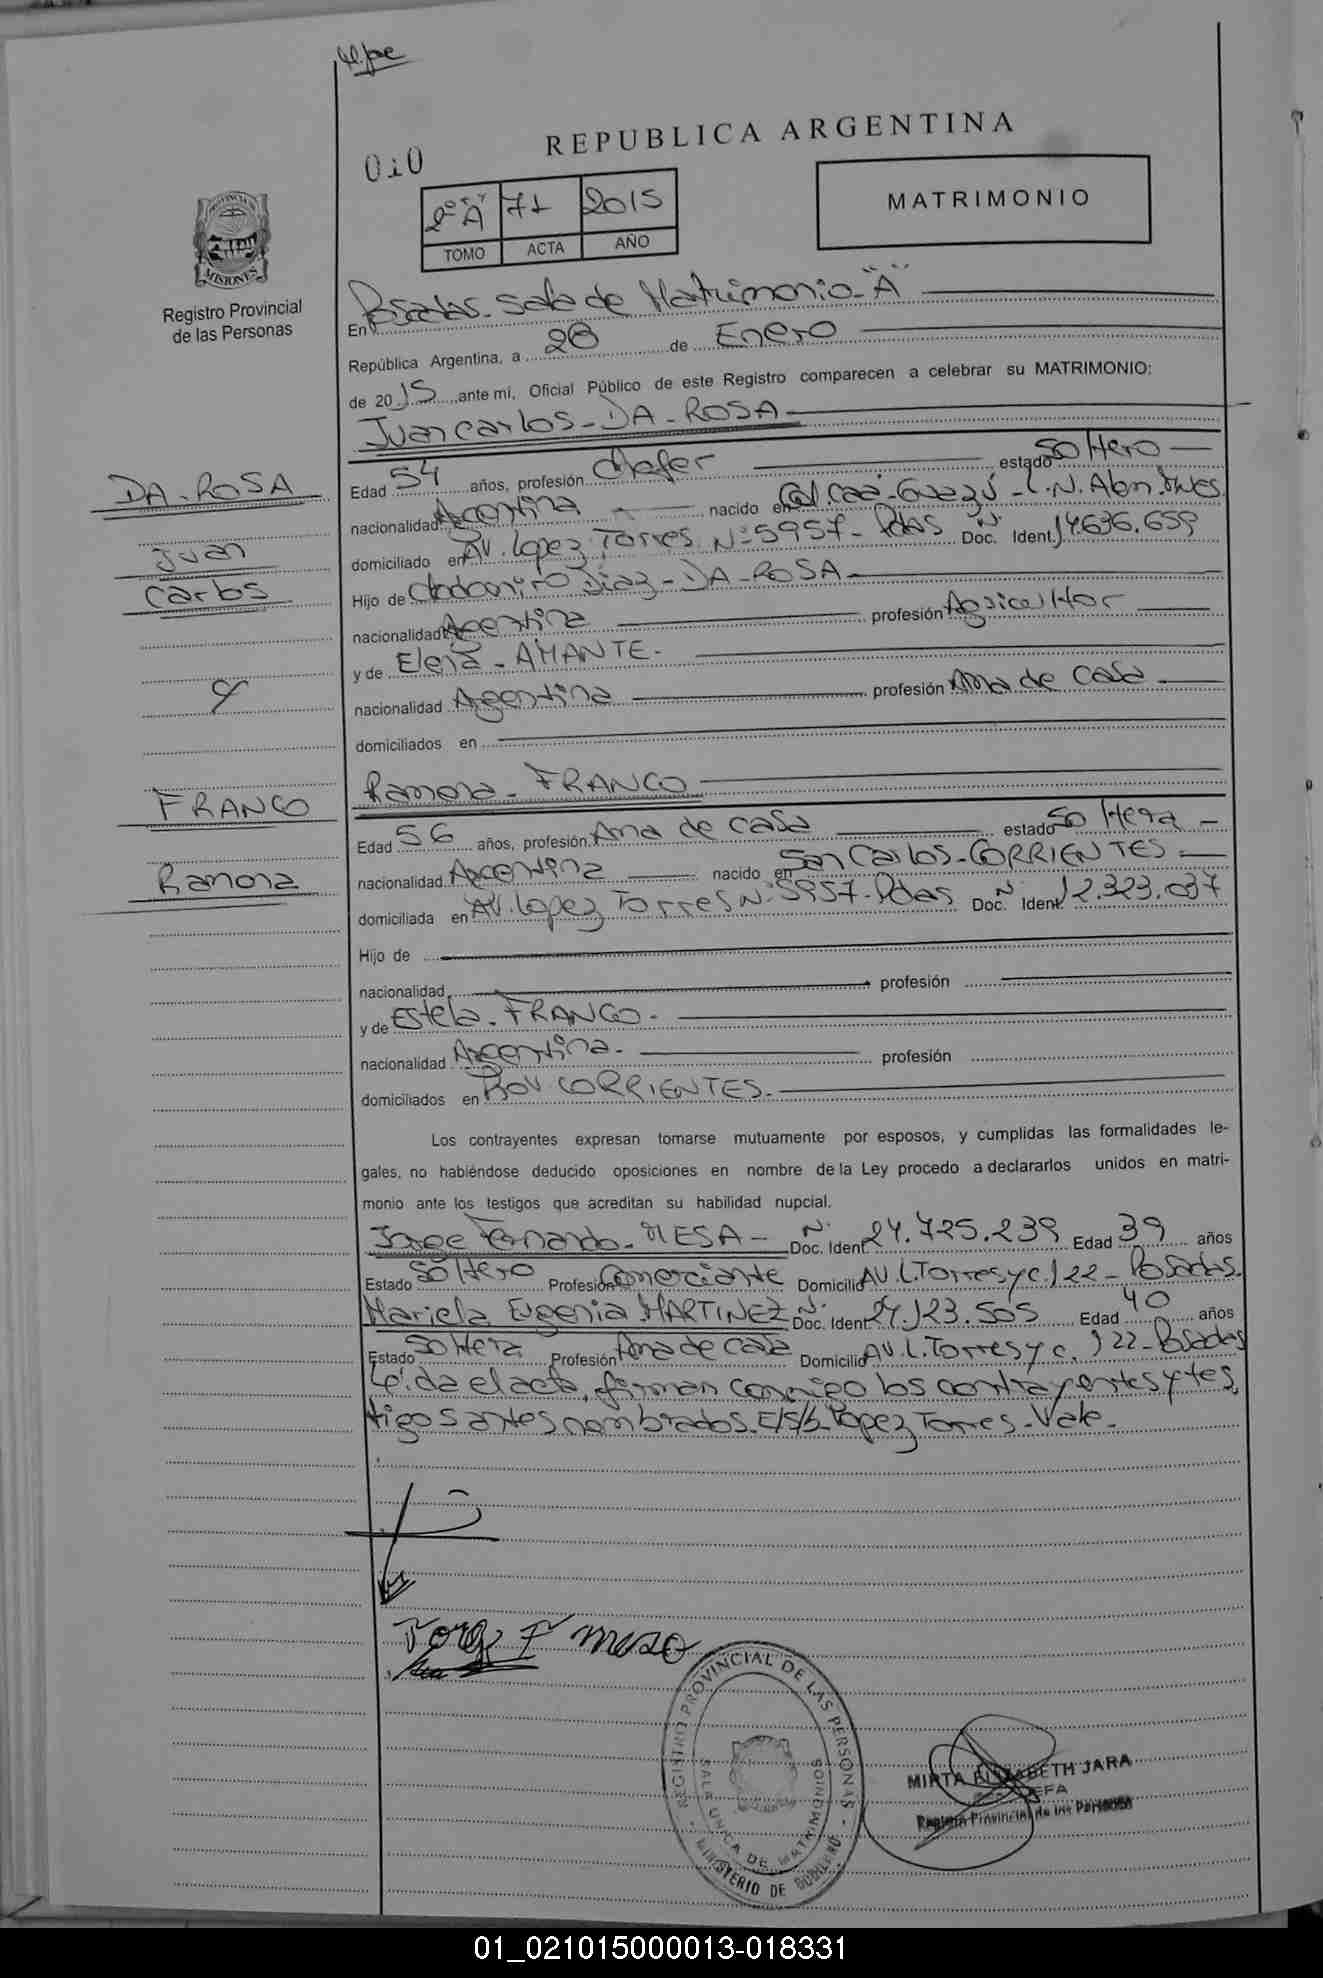 REPUBLICA ARGENTINA
010
2º "A" 71 2015
TOMO ACTA AÑO
MATRIMONIO
PROVINCIA DE
MISIONES
Registro Provincial
de las Personas
En Posadas - Sala de Matrimonio - "A"
República Argentina, a 28 de Enero
de 2015 ante mi, Oficial Público de este Registro comparecen a celebrar su MATRIMONIO:
Juan Carlos - DA - ROSA
DA - ROSA
Juan
Carlos
y
FRANCO
Ramona
Edad 54 años, profesión Chofer estado Soltero
nacionalidad Argentina nacido en Col. Caá - Guazú - L.N. Alem. Mnes.
domiciliado en AV. Lopez Torres Nº 5957 - Pdas Doc. Ident. Nº 14.636.659
Hijo de Clodomiro Diaz - DA - ROSA
nacionalidad Argentina profesión Agricultor
y de Elena - AMANTE -
nacionalidad Argentina profesión Ama de Casa
domiciliados en
Ramona - FRANCO
Edad 56 años, profesión Ama de casa estado Soltera
nacionalidad Argentina nacido en San Carlos - CORRIENTES
domiciliada en AV. Lopez Torres Nº 5957 - Pdas Doc. Ident. Nº 12.323.037
Hijo de
nacionalidad profesión
y de Estela - FRANCO -
nacionalidad Argentina - profesión
domiciliados en CORRIENTES -
Los contrayentes expresan tomarse mutuamente por esposos, y cumplidas las formalidades le-
gales, no habiéndose deducido oposiciones en nombre de la Ley procedo a declararlos unidos en matri-
monio ante los testigos que acreditan su habilidad nupcial.
Jorge Fernando - MESA - Doc. Ident. Nº 24.725.239 Edad 39 años
Estado Soltero Profesión Comerciante Domicilio AV. L. Torres y c. 122 - Posadas.
Mariela Eugenia MARTINEZ Doc. Ident. Nº 24.123.505 Edad 40 años
Estado Soltera Profesión Ama de casa Domicilio AV. L. Torres y c. 122 - Posadas
Leída el acta, firman conmigo los contrayentes y tes
tigos antes nombrados. E/S/b. Lopez Torres - Vale -
Jorge F mesa
REGISTRO PROVINCIAL DE LAS PERSONAS
SALA UNICA DE MATRIMONIOS
MINISTERIO DE GOBIERNO
MIRTA ELIZABETH JARA
JEFA
Registro Provincial de las Personas
01_021015000013-018331